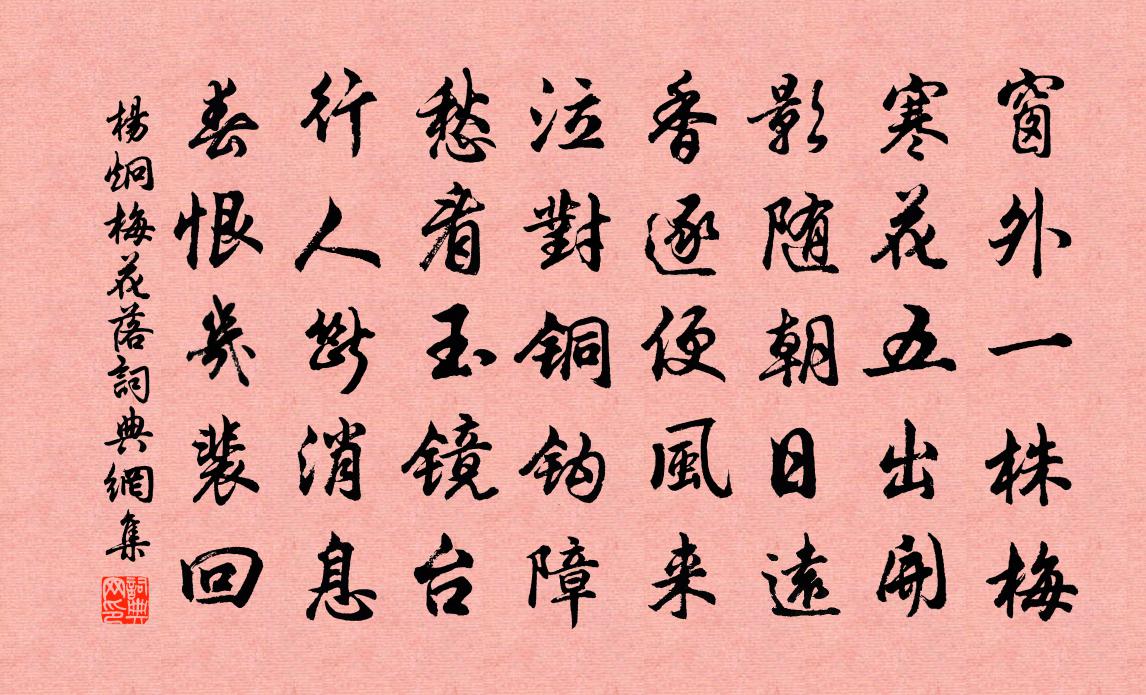 窗外一株梅
寒花五出開
影随朝日遠
香逐便風来
泣對铜钩障
愁看玉镜台
行人斷消息
春恨幾裴回
楊炯梅花落詞典網集
詞典网印